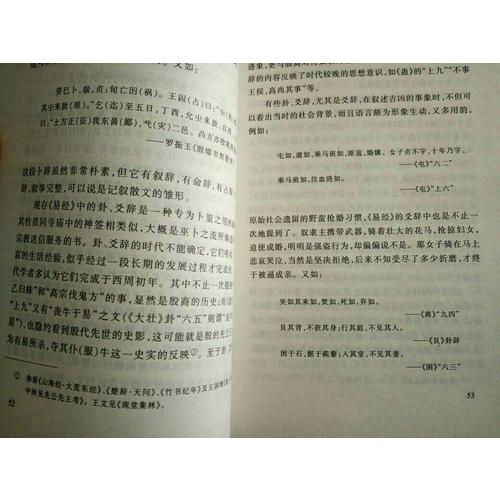 又如：
癸巳卜，殻，贞：旬亡囚(祸)。王囚(占)曰：
有(祟)。”乞(迄)至五日，丁酉，允㞢来
曰：“土方正(征)我东啚(鄙)，𢦏(灾)二邑。
——罗振玉《殷墟书契菁
这段卜辞虽然非常朴素，但它有叙辞，有命辞，有占
辞，叙事完整，可以说是记叙散文的雏形。
现存《易经》中的卦、爻辞是一种专为卜筮之用
其性质同寺庙中的神签相类似，大概是巫卜之流所编
宗教迷信服务的书。卦、爻辞的时代不能确定，它们
富的生活经验，似乎经过一段长期的发展过程才完成
代学者多认为它们完成于西周初年。其中不止一次提到
乙归妹”和“高宗伐鬼方”的事，显然是殷商的历史；
“上九”又有“丧牛于易”之文(《大壮》卦“六五”则谓“丧
易”)，也隐约看到殷代先世的史影，这可能就是殷的先公王
为有易所杀，夺其仆(服)牛这一史实的反映①。至于卦、
① 参看《山海经·大荒东经》、《楚辞·天问》、《竹书纪年》及王国维
中所见先公先王考》。王文见《观堂集林》。
52
迹象，更与殷商
辞的内容反映了时代较晚的思想意识，如《蛊》的“上九”“不事
王侯，高尚其事”等。
有些卦、爻辞，尤其是爻辞，在叙述吉凶的事象时，不但可
以看出当时的社会背景，而且语言颇为形象生动，又多用韵。
例如：
屯如，邅如，乘马班如，匪寇，婚媾。女子贞不字，十年乃字。
——《屯》“六二”
乘马班如，泣血涟如。
——《屯》“上六”
原始社会遗留的野蛮抢婚习惯，《易经》的爻辞中也是不止一
次地提到了。奴隶主携带武器，骑着壮大的花马，抢掠妇女，
迫使成婚，明明是强盗行为，却偏偏说不是。那女子骑在马上
悲哀哭泣，当然是坚决拒绝，后来不知受尽了多少折磨，才终
于被逼成亲。又如：
突如其来如，焚如，死如，弃如。
——《离》“九四”
艮其背，不获其身；行其庭，不见其人。
——《艮》卦辞
困于石，据于蒺藜；入其宫，不见其妻。
——《困》“六三”
53